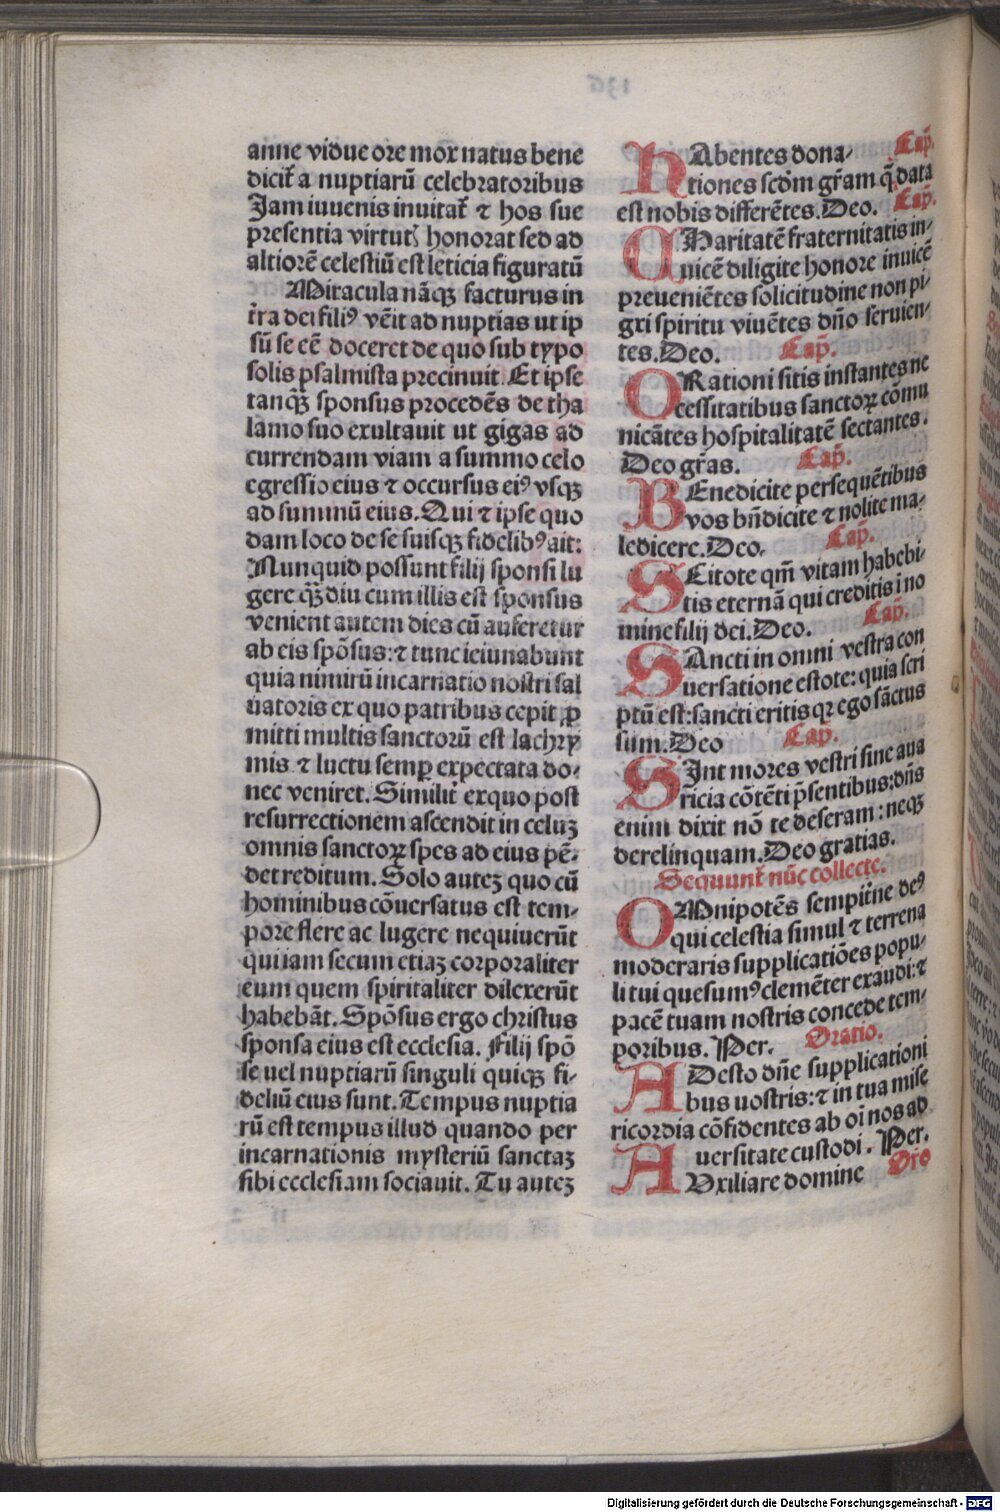 anne vidue ore mox natus bene
dicit᷑ a nuptiarū celebratoribus
Iam iuuenis inuitat᷑ ⁊ hos sue
presentia virtutꝭ honorat sed ad
altiorē celestiū est leticia figuratū
Miracula nāqꝫ facturus in
t᷑ra dei filiꝰ vēit ad nuptias ut ip
sū se eē doceret de quo sub typo
solis psalmista precinuit. Et ipse
tanqꝫ sponsus procedēs de tha
lamo suo exultauit ut gigas ad
currendam viam a summo celo
egressio eius ⁊ occursus eiꝰ vsqꝫ
ad summū eius. Qui ⁊ ipse quo
dam loco de se suisqꝫ fidelibꝰ ait:
Nunquid possunt filij sponsi lu
gere qꝫdiu cum illis est sponsus
venient autem dies cū auferetur
ab eis spōsus: ⁊ tunc ieiunabunt
quia nimirū incarnatio nostri sal
uatoris ex quo patribus cepit ꝓ
mitti multis sanctorū est lachry
mis ⁊ luctu semꝑ expectata do-
nec veniret. Similit᷑ ex quo post
resurrectionem ascendit in celuꝫ
omnis sanctoꝝ spes ad eius pē-
det reditum. Solo auteꝫ quo cū
hominibus cōuersatus est tem-
pore flere ac lugere nequiuerūt
qui iam secum etiaꝫ corporaliter
eum quem spiritaliter dilexerūt
habebāt. Spōsus ergo christus
sponsa eius est ecclesia. Filij spō
se uel nuptiarū singuli quiqꝫ fi-
deliū eius sunt. Tempus nuptia
rū est tempus illud quando per
incarnationis mysteriū sanctaꝫ
sibi ecclesiam sociauit. Tu auteꝫ
HAbentes dona- Cap̄.
tiones scd̄m gr̄am q̄ data
est nobis differētes. Deo. Cap̄.
CHaritatē fraternitatis in-
uicē diligite honore inuicē
preueniētes solicitudine non pi-
gri spiritu viuētes dn̄o seruien-
tes. Deo. Cap̄.
ORationi sitis instantes ne
cessitatibus sanctoꝝ cōmu
nicātes hospitalitatē sectantes.
Deo gr̄as. Cap̄.
BEnedicite persequētibus
vos bn̄dicite ⁊ nolite ma-
ledicere. Deo. Cap̄.
SCitote qm̄ vitam habebi-
tis eternā qui creditis i no
mine filij dei. Deo. Cap̄.
SAncti in omni vestra con
uersatione estote: quia scri
ptū est: sancti eritis qꝛ ego sāctus
sum. Deo Cap̄.
SInt mores vestri sine aua
ricia cōtēti p̄sentibus: dn̄s
enim dixit nō te deseram: neqꝫ
derelinquam. Deo gratias.
Sequunt᷑ nūc collecte.
OMnipotēs sempit᷑ne deꝰ
qui celestia simul ⁊ terrena
moderaris supplicatiōes popu-
li tui quesumꝰ clemēter exaudi: ⁊
pacē tuam nostris concede tem-
poribus. Per. Oratio.
ADesto dn̄e supplicationi
bus uostris: ⁊ in tua mise
ricordia cōfidentes ab oī nos ad
uersitate custodi. Per.
AUxiliare domine Oro
Digitalisierung gefördert durch die Deutsche Forschungsgemeinschaft - DFG